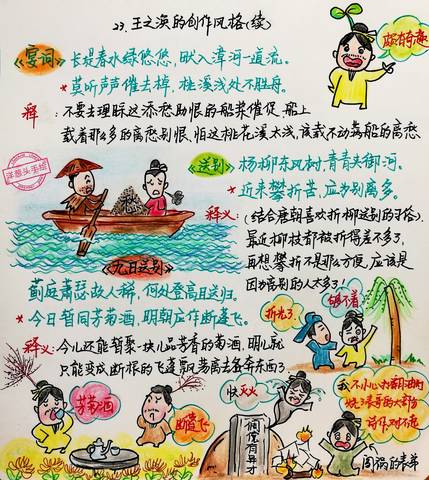 23.王之涣的创作风格(续)
《宴词》长堤春水绿悠悠，畎入漳河一道流。
*莫听声声催去棹，桃溪浅处不胜舟。
颇有奇趣
释：不要去理睬这添愁助恨的船桨催促，船上
载着那么多的离愁别恨，怕这桃花溪太浅，该载不动满船的离愁
洋葱头手绘
《送别》杨柳东风树，青青夹御河。
*近来攀折苦，应为别离多。
释义：(结合唐朝喜欢折柳送别的习俗)
最近柳枝都被折得差不多了，
再想攀折不是那么方便，应该是
因为离别的人太多了。
《九日送别》
蓟庭萧瑟故人稀，何处登高且送归。
*今日暂同芳菊酒，明朝应作断蓬飞。
释义：今儿还能暂聚一块儿品芳香的菊酒，明儿就
只能变成断根的飞蓬飘荡离去各奔东西了
折光了
够不着
芳菊酒
断蓬飞
快灭火
倜傥有异才
我不小心